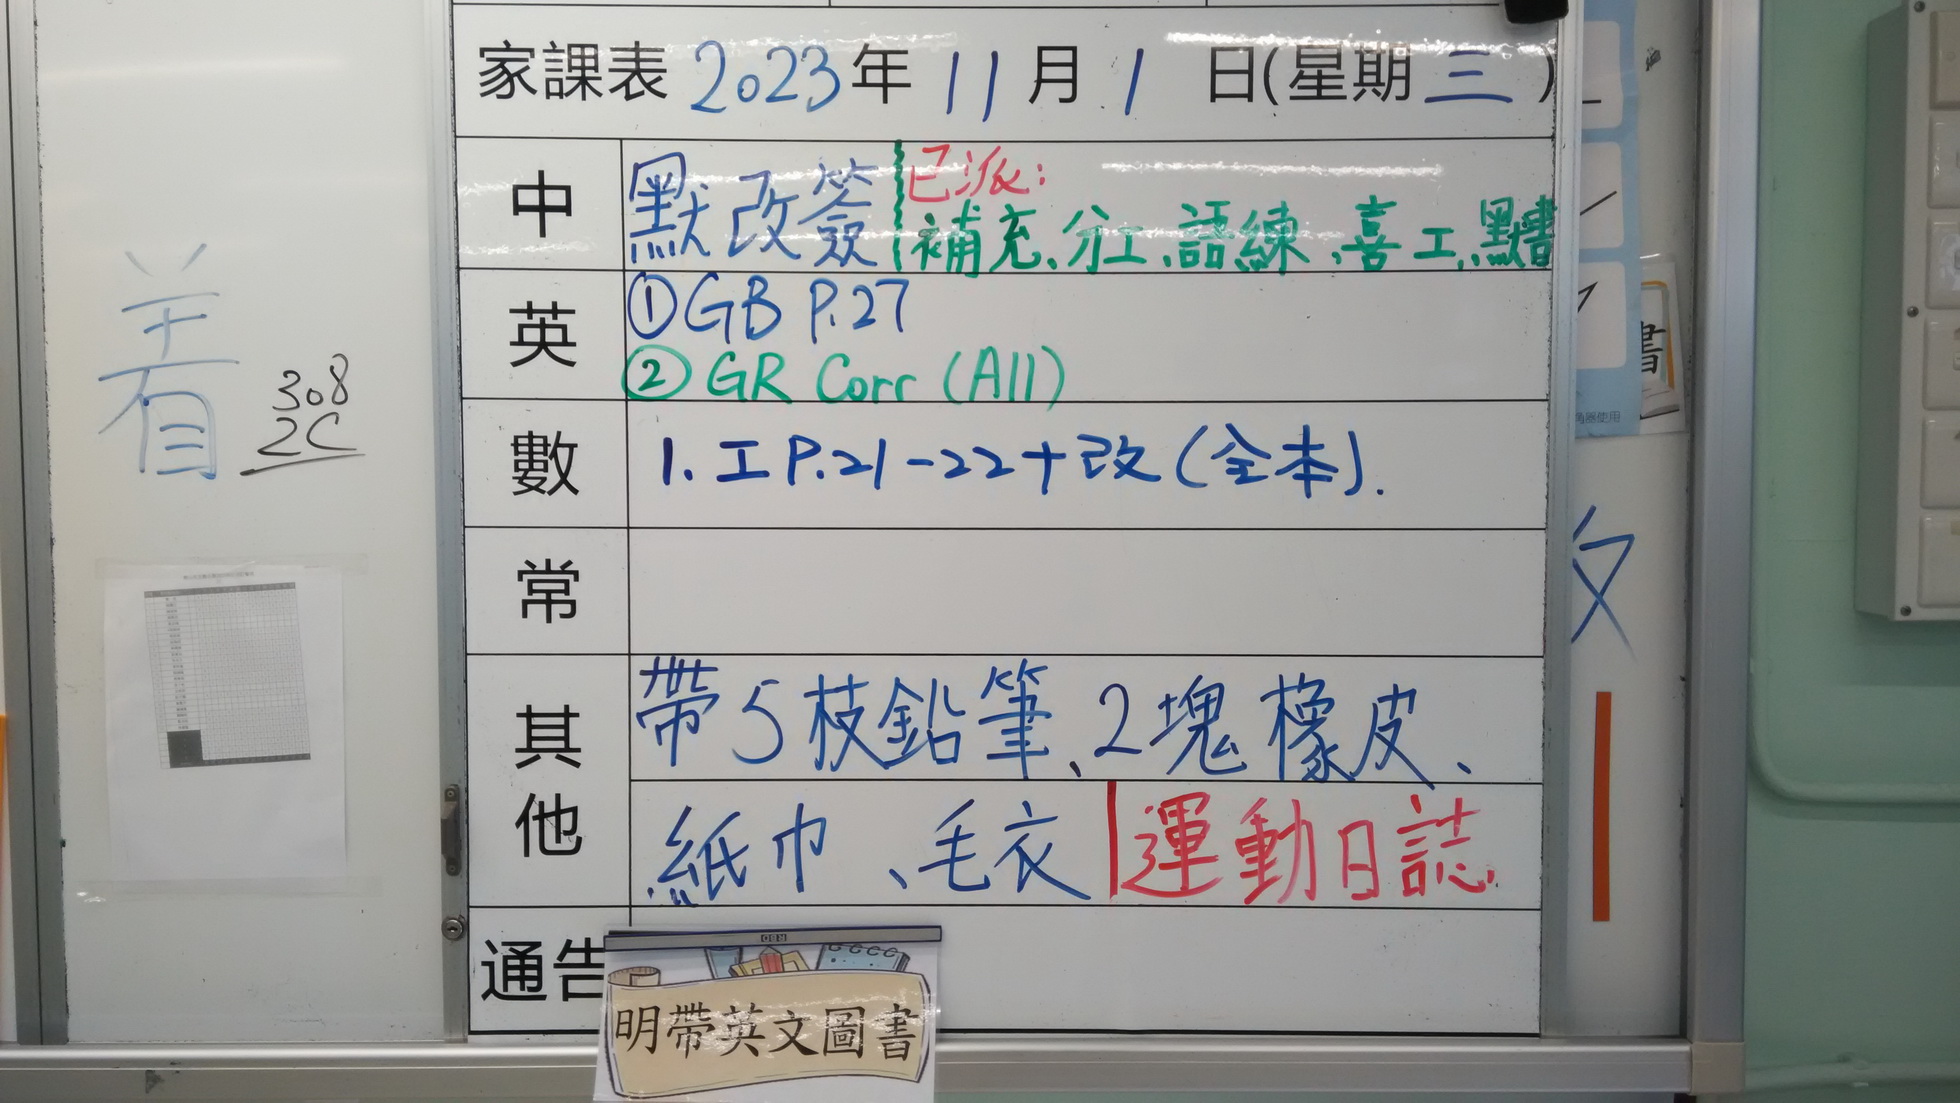 家課表 2023年 11月 1 日(星期 三 )
中
默改簽
已派:
補充、分工、語練、喜工、默書
英
①GB P.27
②GR Corr (All)
數
1. 工 P.21-22+改(全本).
常
其他
帶5枝鉛筆、2塊橡皮、
紙巾、毛衣
運動日誌
通告
明帶英文圖書
着
308
2C
書
文